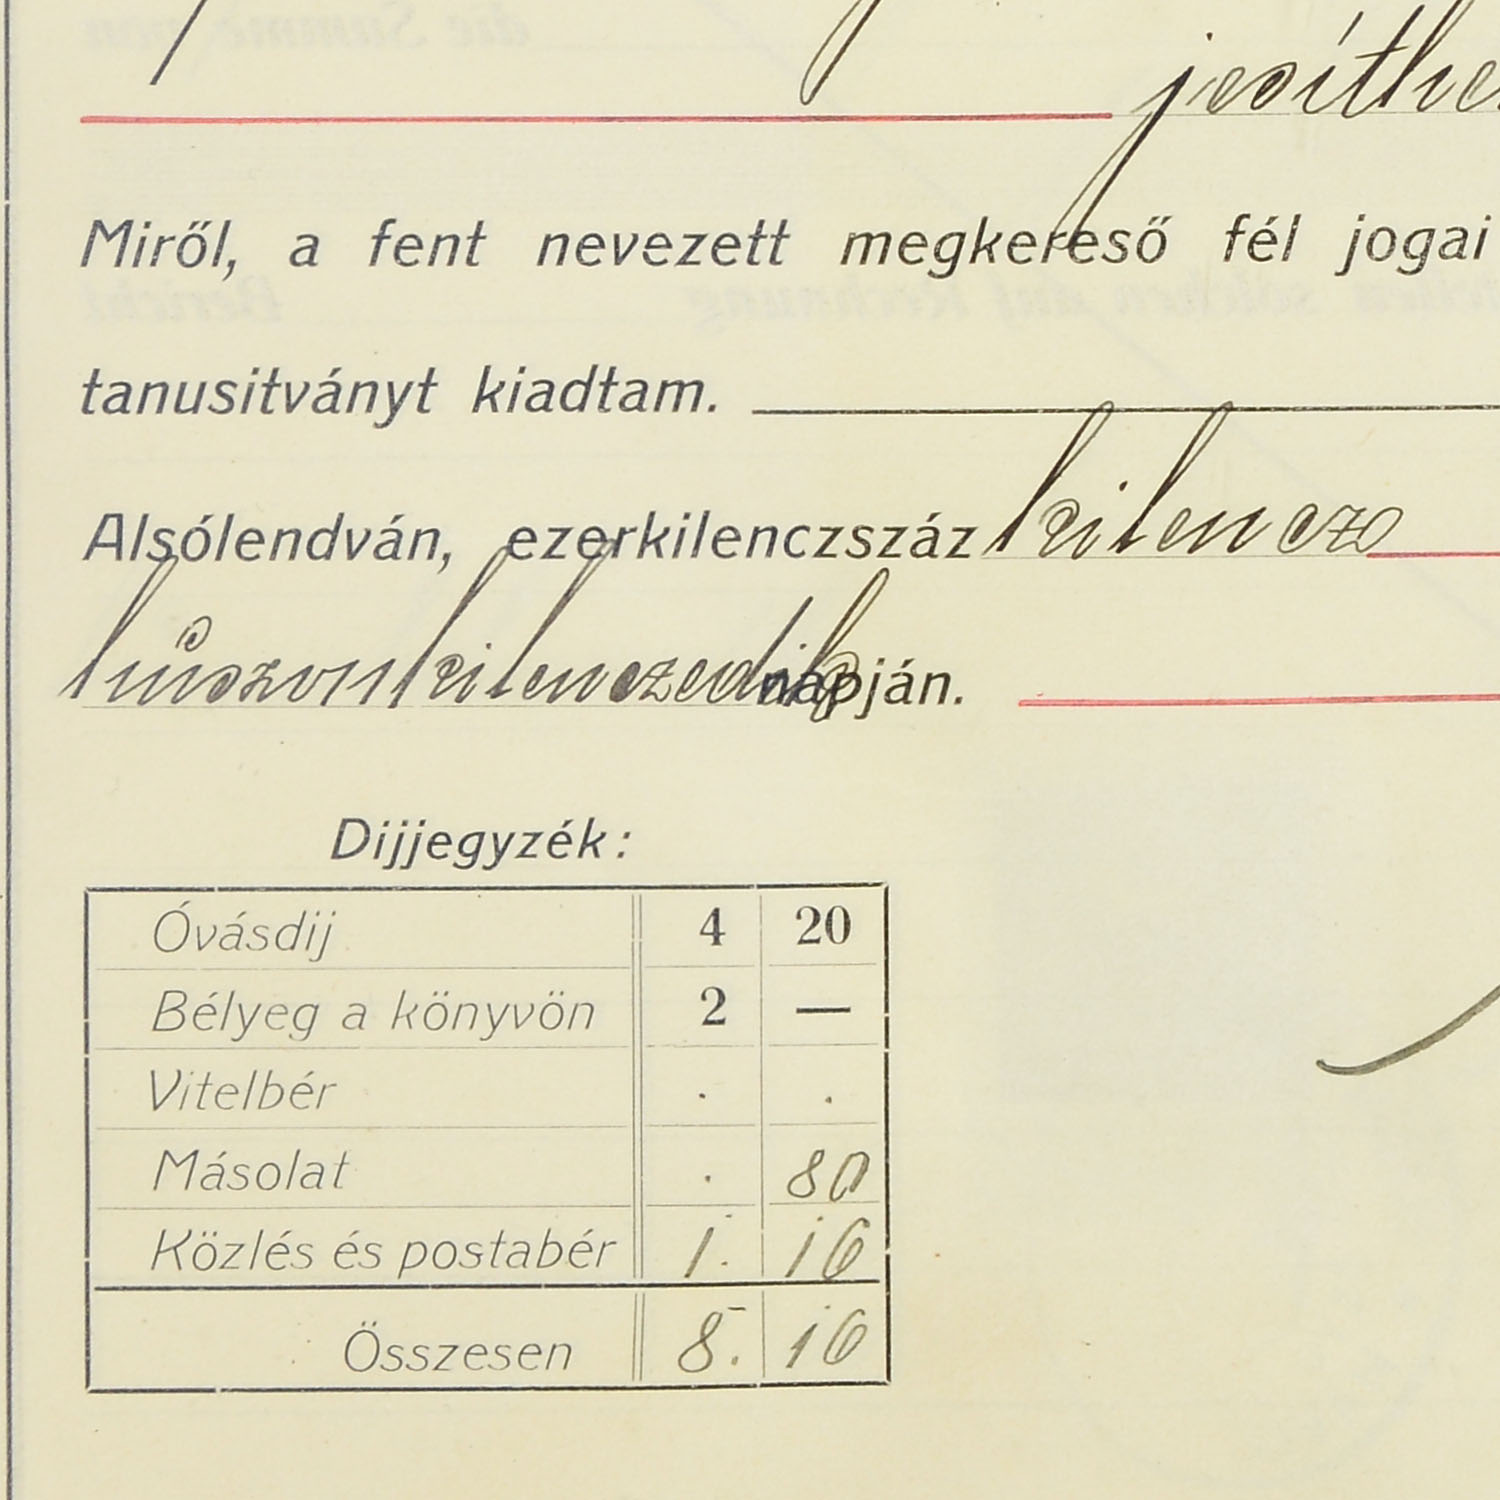 jesíthe
Miről, a fent nevezett megkereső fél jogai
tanusitványt kiadtam.
Alsólendván, ezerkilenczszáz kilencz
huszonkilenczedik napján.
Dijjegyzék:
Óvásdij 4 20
Bélyeg a könyvön 2 —
Vitelbér . .
Másolat . 80
Közlés és postabér 1. 16
Összesen 8. 16